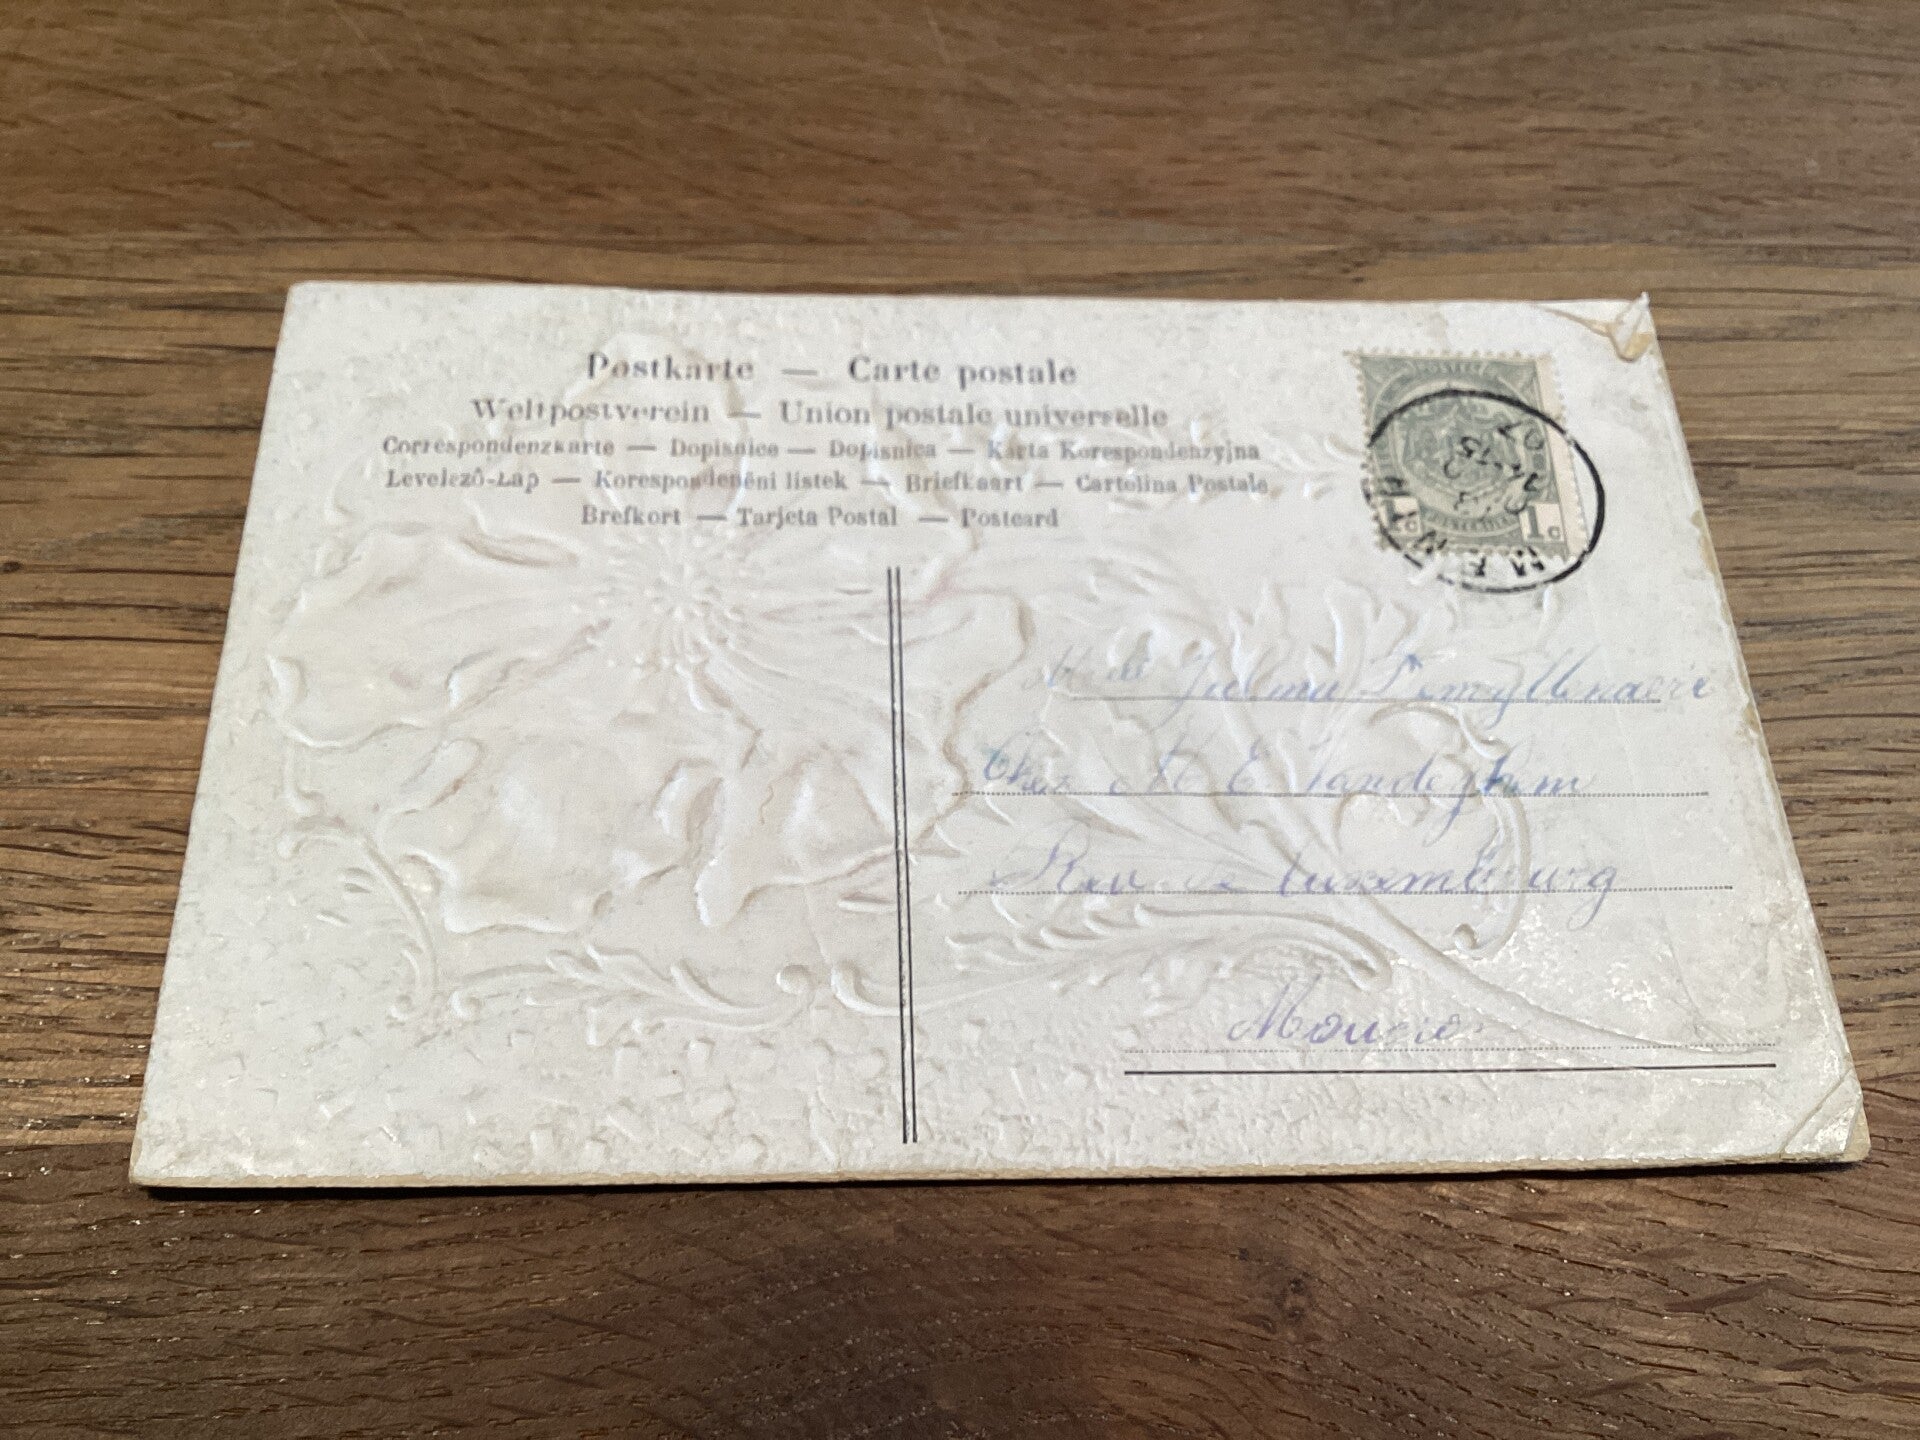 Postkarte — Carte postale
Weltpostverein — Union postale universelle
Correspondenzkarte — Dopisnice — Dopisnica — Karta Korespondenzyjna
Levelezô-Lap — Korespondenčni listek — Briefkaart — Cartolina Postale
Brefkort — Tarjeta Postal — Postcard
1c
Chez M E Vandeghem
Rue de Luxembourg